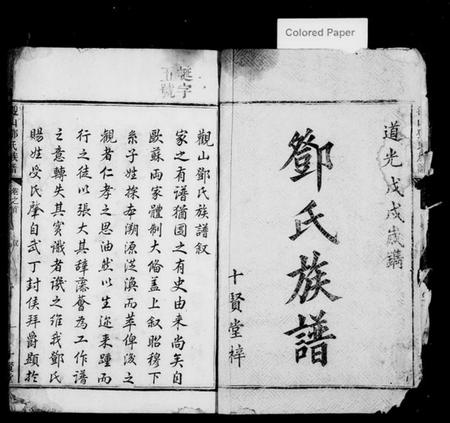 Colored Paper
道光戊戌歲鐫
鄧氏族譜
十賢堂梓
誕字
五號
觀山鄧氏族譜叙
家之有譜猶國之有史由來尚矣自
歐蘇兩家體制大備葢上叙昭穆下
系子姓探本溯源泛渙而萃俾後之
觀者仁孝之思油然以生邇来踵而
行之徒以張大其辭薈為工作譜
之意轉失其實識者譏之維我鄧氏
賜姓受氏肇自武丁封侯拜爵顯於
鄧氏族譜
卷之首